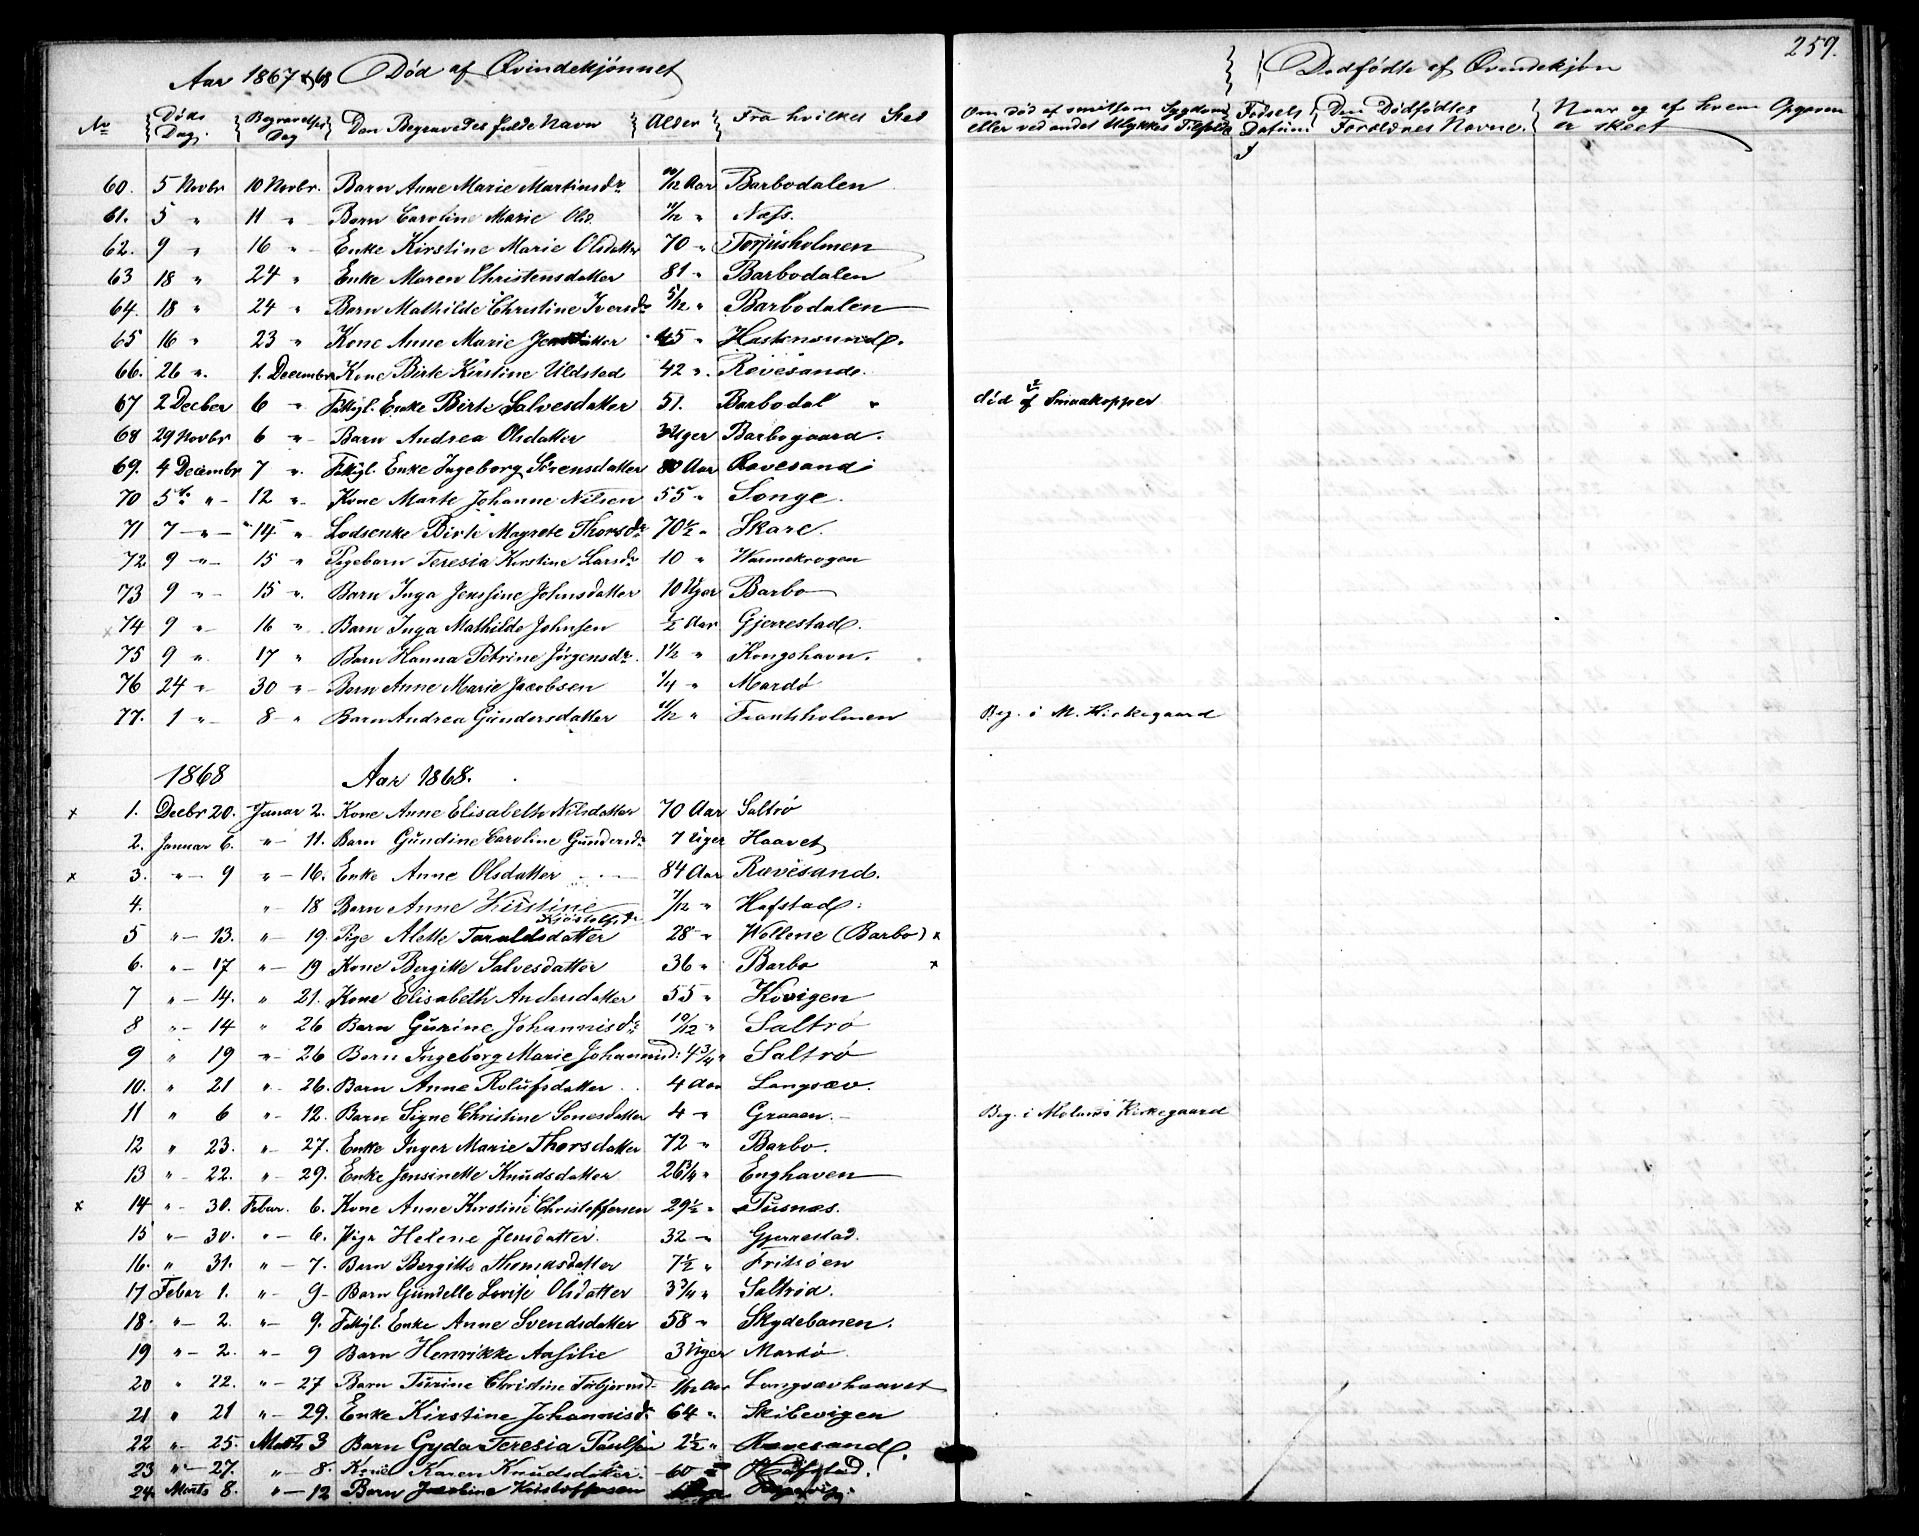 259.
Aar 1867 & 68 Død af Qvindekjønnet
Dødfødte af Qvindekjøn
No Døds Dag. Begravelses Dag Den Begravedes fulde Navn Alder Fra hvilket Sted Om død af smitsom Sygdom eller ved andet Ulykkes Tilfælde Fødsels Datum Den Dødfødtes Forældres Navne. Naar og af hvem Opgaven er skeet
60. 5 Novbr 10 Novbr. Barn Anne Marie Martinsdr 10/12 Aar Barbodalen
61. 5 " 11 " Barn Caroline Marie Olsd. 11/12 " Næss.
62. 9 " 16 " Enke Kirstine Marie Olsdatter 70 " Torjusholmen
63 18 " 24 " Enke Maren Christensdatter 81 " Barbodalen
64. 18 " 24 " Barn Mathilde Christine Iversdr 5/12 " Barbodalen
65 16 " 23 " Kone Anne Marie 45 " Hastensund.
66. 26 ". 1. Decembr Kone Birte Kirstine Uldsted 42 ". Rævesand.
67 2 Decber 6 " Fattigl. Enke Birte Salvesdatter 51. Barbodal " død af Smaakopper
68 29 Novbr 6 " Barn Andrea Olsdatter 3 Uger Barbogaard.
69. 4 Decembr 7 ". Fattigl. Enke Ingeborg Sørensdatter 80 Aar Rævesand
70 5te " 12 ". Kone Marte Johanne Nilsen 55 " Songe.
71 7 " 14 " Lodsenke Birte Magrete Thorsdr 70½ " Skare.
72 9 " 15 " Pigebarn Teresia Kirstine Larsdr 10 " Warmekrogen
73 9 " 15 ". Barn Inga Jensine Johnsdatter 10 Uger Barbo
x 74 9 " 16 ". Barn Inga Mathilde Johnsen ½ Aar Gjerrestad.
75 9 " 17 " Barn Hanna Petrine Jørgensdr. 1½ " Kongshavn.
76 24 " 30 " Barn Anne Marie Jacobsen ¼ " Mardø
77. 1 " 8 " Barn Andrea Gundersdatter 11/12 " Frantsholmen Beg. i M. Kirkegaard
1868 Aar 1868.
x 1. Decbr 20. Januar 2. Kone Anne Elisabeth Nilsdatter 70 Aar Saltrø
2. Januar 6. " 11. Barn Gundine Caroline Gundersdr 7 Uger Haavet
x 3. " 9 " 16. Enke Anne Olsdatter 84 Aar Rævesand.
4. " 18 Barn Anne Kirstine 7/12 " Hafstad.
5 " 13. " 19. Pige Alette Taraldsdatter 28 " Wollene (Barbo) x
6. " 17 " 19 Kone Bergitte Salvesdatter 36 " Barbo x
7 " 14. " 21. Kone Elisabeth Andersdatter 55 " Kovigen
8 " 14 " 26 Barn Gurine Johannisdr 10/12 " Saltrø
9 " 19 " 26 Barn Ingeborg Marie Johannisd: 4¾ " Saltrø
10. " 21 " 26. Barn Anne Rolufsdatter 4 Aar Langsæv.
11 " 6 " 12. Barn Signe Christine Sonesdatter 4 " Graaen. Beg. i Molands Kirkegaard
12 " 23. " 27. Enke Inger Marie Thorsdatter 72 " Barbo.
13 " 22. " 29. Enke Jensinette Knudsdatter 26¾ " Enghaven
x 14 " 30. Febar. 6. Kone Anne Kirstine Christoffersen 29½ " Pusnæs.
15 " 30. " 6. Pige Helene Jensdatter. 32 " Gjerrestad.
16. " 31. " 7. Barn Bergitte Thomasdatter 7½ " Fritsøen
17 Febar 1. " 9 Barn Gundelle Lovise Olsdatter 3¾ " Saltrød.
18. " 2. " 9. Fattigl. Enke Anne Svendsdatter 58 " Skydebanen.
19 " 2. " 9 Barn Henrikke Aasilie 3 Uger Mardø
20 " 22. " 27 Barn Turine Christine Torbjørnsd 1/12 Aar Langsævhaavet
21 " 21 " 29. Enke Kirstine Johannisdr 64 " Skibevigen
22 " 25. Marts 3 Barn Gyda Teresia Paulsen 2½ " Rævesand.
23 " 27. " 8. Kone Karen Knudsdatter. 60 " Hafstad.
24. Marts 8. " 12 Barn Kristoffersen